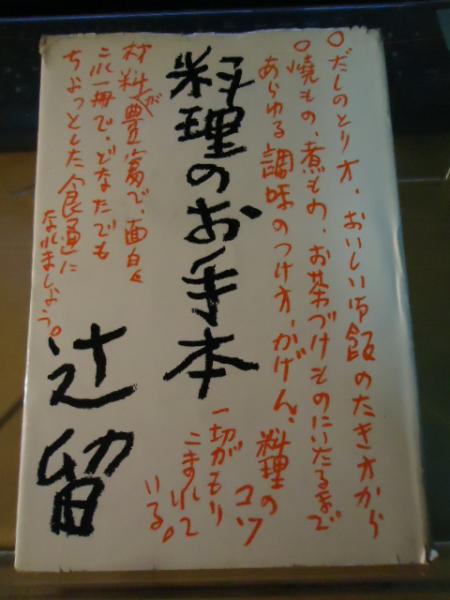 〇だしのとり方、おいしい御飯のたき方から
〇燒もの、煮もの、お茶づけものにいたるまで
あらゆる調味のつけ方、かげん、料理の
コツ
一切がもり
こまれて
いる。
料理のお手本
材料が豊富で、面白く
これ一冊で、どなたでも
ちょっとした食通に
なれましょう。
辻留